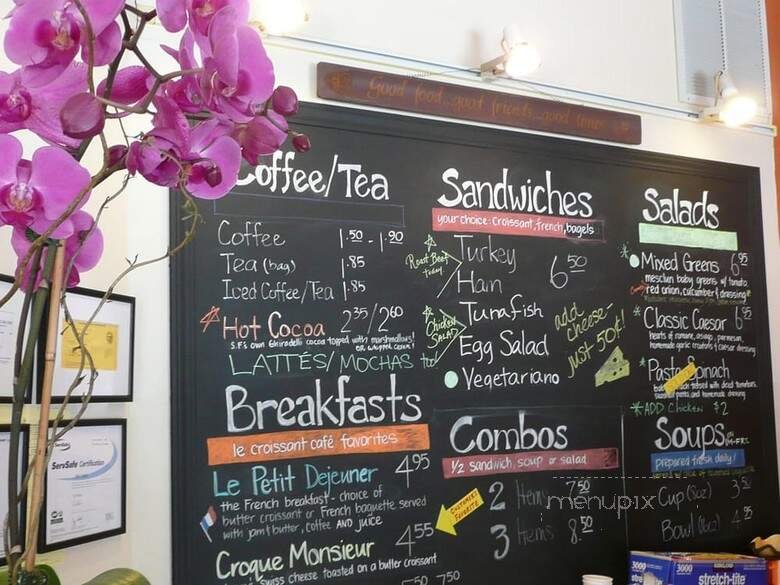 Good food...good friends...good times
Coffee/Tea
Coffee 1.50 - 1.90
Tea (bag) 1.85
Iced Coffee/Tea 1.85
Hot Cocoa 2.35/2.60
S.F.'s own Ghiradelli cocoa topped with marshmallows!
or whipped cream!
LATTÉS/MOCHAS too
Breakfasts
le croissant café favorites
Le Petit Dejeuner 4.95
the French breakfast - choice of
butter croissant or French baguette served
with jam & butter, coffee AND juice
CUSTOMER FAVORITE
Croque Monsieur 4.55
swiss cheese toasted on a butter croissant
7.50
Sandwiches
your choice: Croissant, French, bagels
Roast Beef today
Turkey
Ham
6.50
Chicken SALAD
Tunafish
Egg Salad
Vegetariano
add cheese- just 50¢!
Combos
1/2 sandwich, soup or salad
2 Items 7.50
3 Items 8.50
Salads
Mixed Greens 6.95
mesclun baby greens w/ tomato
red onion, cucumber & dressing
Classic Caesar 6.95
hearts of romaine, asiago, parmesan,
homemade garlic croutons & caesar dressing
Pasta Spinach
tossed with dried tomatoes,
and homemade dressing
ADD Chicken $2
Soups M-FRI.
prepared fresh daily!
Cup (8oz) 3.50
Bowl 4.95
menupix
ServSafe Certification
3000
stretch-tite
3000
stretch-tite
KIRKLAND